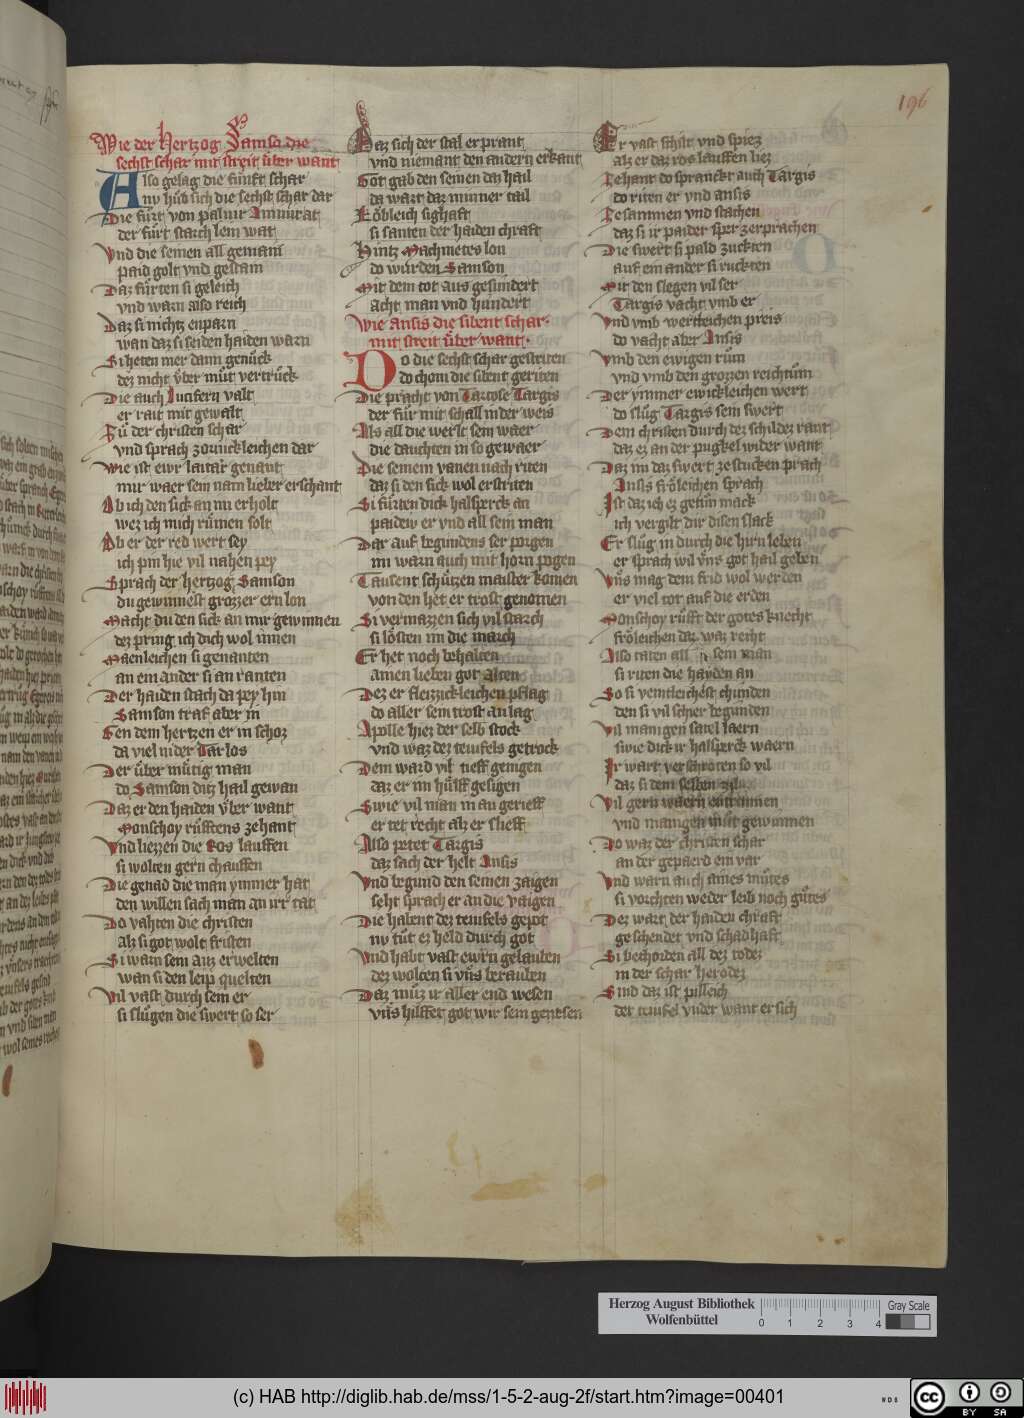 196
Wie der Hertzog Samson die
sechst schar mit streit vber want
Also gelag die fünft schar
nv hůb sich die sechst schar dar
Die fürt von palnir Ammirat
der fürt starch lem wat
Vnd die seinen all gemain
paid golt vnd gestain
Daz fürten si geleich
vnd warn also reich
Daz si nichtz enparn
wan daz si seiden haiden warn
Si heten mer dann genůck
dez nicht vber můt vertrůck
Die auch Lucifern valt
er rait mit gewalt
Fů der christen schar
vnd sprach zornickleichen dar
Wie ist ewr laitär genant
mir waer sein nam lieber erschant
Ob ich den sick an im erholt
wez ich mich rümen solt
Ob er der red wert sey
ich pin hie vil nahen pey
Sprach der hertzog Samson
du gewinnest grozzer ern lon
Macht du den sick an mir gewinnen
dez pring ich dich wol innen
Maenleichen si genanten
an ein ander si an ranten
Der haiden stach da pey hin
Samson traf aber in
Gen dem hertzen er in schoz
da viel nider Tarlos
Der über mütig man
do Samson diz hail gewan
Daz er den haiden vber want
Monschoy růfftens zehant
Vnd liezzen die Ros lauffen
si wolten gern chauffen
Die genad die man ymmer hat
den willen sach man an irr tat
Do vahten die christen
alz si got wolt fristen
Si warn sein auz erwelten
wan si den leip quelten
Vil vast durch sein er
si slůgen die swert so ser
Daz sich der stal erprant
vnd niemant den andern erkant
Got gab den seinen daz hail
da wart daz minner tail
Löbleich sighaft
si santen der haiden chraft
Hintz Machmetes lon
do würden Samson
Mit dem tot aus gesundert
acht man vnd hundert
Wie Ansis die sibent schar
mit streit über want
Do die sechst schar gestriten
do chom die sibent geriten
Die pracht von Tartose Targis
der für mit schall in der weis
Als all die werlt sein waer
die dauchten in so gewaer
Die seinem vanen nach riten
daz si den sick wol erstriten
Si fürten dick halsperck an
paidew er vnd all sein man
Dar auf begundens ser porgen
im warn auch mit horn pogen
Tausent schützen maister komen
von den het er trost genomen
Si vermazzen sich vil starch
si lösten im die march
Er het noch behalten
ainen lieben got alten
Dez er fleizzickleichen pflag
do aller sein trost an lag
Apolle hiez der selb stock
vnd waz dez teufels getrock
Dem ward vil tieff genigen
daz er im hülff gesigen
Swie vil man in an gerieff
er tet recht alz er slieff
Also petet Targis
daz sach der helt Ansis
Vnd begund den seinen zaigen
seht sprach er an die vaigen
Die habent dez teufels gepot
nv tůt ez held durch got
Vnd habt vast ewrn gelauben
dez wolten si vns berauben
Daz můz ir aller end wesen
vns hilffet got wir sein genesen
Er vast schilt vnd spiez
alz er daz ros lauffen liez
Zehant do spranckt auch Targis
do riten er vnd ansis
Zesammen vnd stachen
daz si ir paider sper zerprachen
Die swert si pald zuckten
auf ein ander si ruckten
Mit den slegen vil ser
Targis vacht vmb er
Vnd vmb werltleichen preis
do vacht aber Ansis
Vmb den ewigen rům
vnd vmb den grozzen reichtům
Der ymmer ewickleichen wert
do slůg Targis sein swert
Dem christen durch dez schildez rant
daz ez an der pugkel wider want
Daz im daz swert ze stucken prach
Ansis fröleichen sprach
Ist daz ich ez getůn mack
ich vergilt dir disen slack
Er slůg in durch die hirn leben
er sprach wil vns got hail geben
Vns mag dem frid wol werden
er viel tot auf die erden
Monschoy růfft der gotes knecht
fröleichen daz waz recht
Also taten all sein man
si riten die hayden an
So si veintleichest chunden
den si vil schier begunden
Vil manigen satel laern
swie dick ir halsperck waern
Ir wart verschroten so vil
daz si dem selben zil
Vil gern waern entrinnen
vnd mangen můt gewunnen
Do waz der christen schar
an der gepaerd ein var
Vnd warn auch aines můtes
si vorchten weder leib noch gůtes
Dez wart der haiden chraft
geschendet vnd schadhaft
Si bechorden all dez todez
in der schar herodez
Sind daz ist pilleich
der teufel vnder want er sich
Herzog August Bibliothek
Wolfenbüttel
0 1 2 3 4
Gray Scale
(c) HAB http://diglib.hab.de/mss/1-5-2-aug-2f/start.htm?image=00401
WDB
cc BY SA